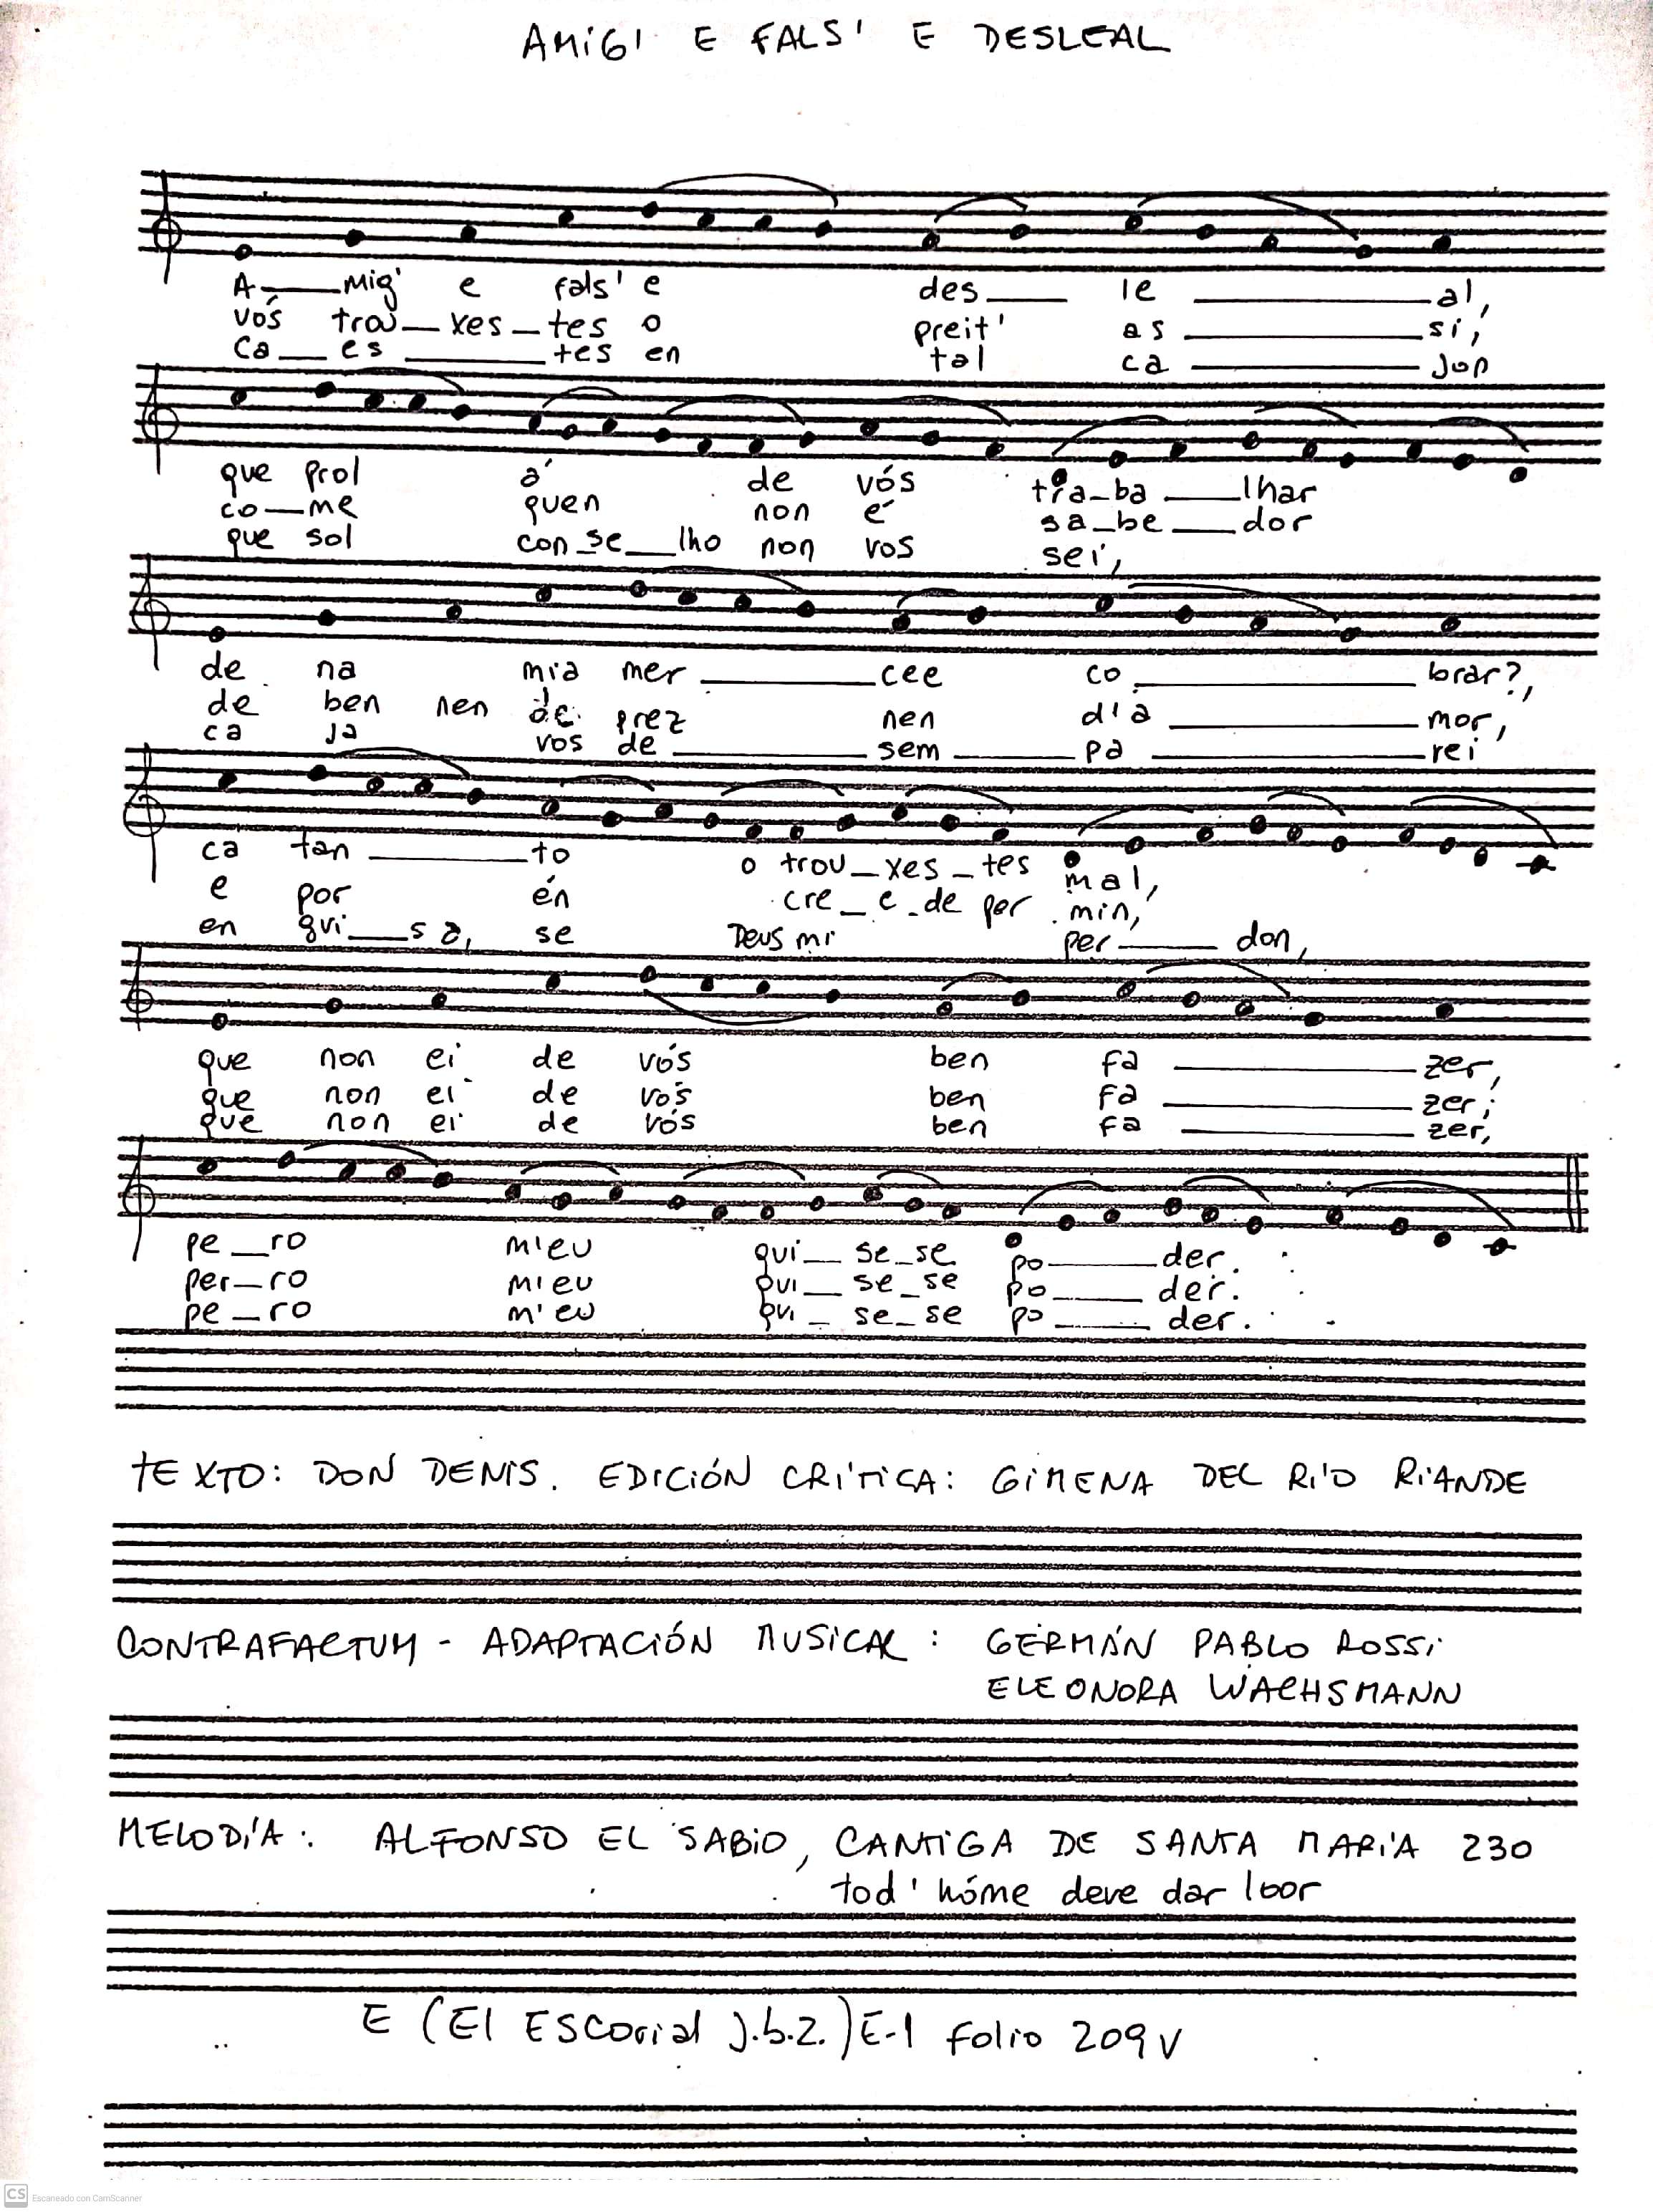 AMIG' E FALS' E DESLEAL
A___mig' e fals' e des___ le ___al,
vós trou_xes_tes o preit' as ___si,
ca__es ___tes en tal ca ___jon
que prol á de vós tra_ba___lhar
co__me quen non é sa_be__dor
que sol con_se__lho non vos sei,
de na mia mer ___cee co ___brar?,
de ben nen de prez nen d'a ___mor,
ca ja vos de ___sem ___pa ___rei
ca tan ___to o trou_xes_tes mal,
e por én cre_e_de per min,
en gui__sa, se Deus mi per___don,
que non ei de vós ben fa ___zer,
que non ei de vós ben fa ___zer;
que non ei de vós ben fa ___zer,
pe_ro m'eu qui_se_se po___der.
per_ro m'eu qui_se_se po___der.
pe_ro m'eu qui_se_se po___der.
TEXTO: DON DENIS. EDICIÓN CRÍTICA: GIMENA DEL RÍO RIANDE
CONTRAFACTUM - ADAPTACIÓN MUSICAL: GERMÁN PABLO ROSSI
ELEONORA WACHSMANN
MELODÍA: ALFONSO EL SABIO, CANTIGA DE SANTA MARÍA 230
tod' hóme deve dar loor
E (El Escorial J.b.2.) E-1 folio 209v
CS Escaneado con CamScanner